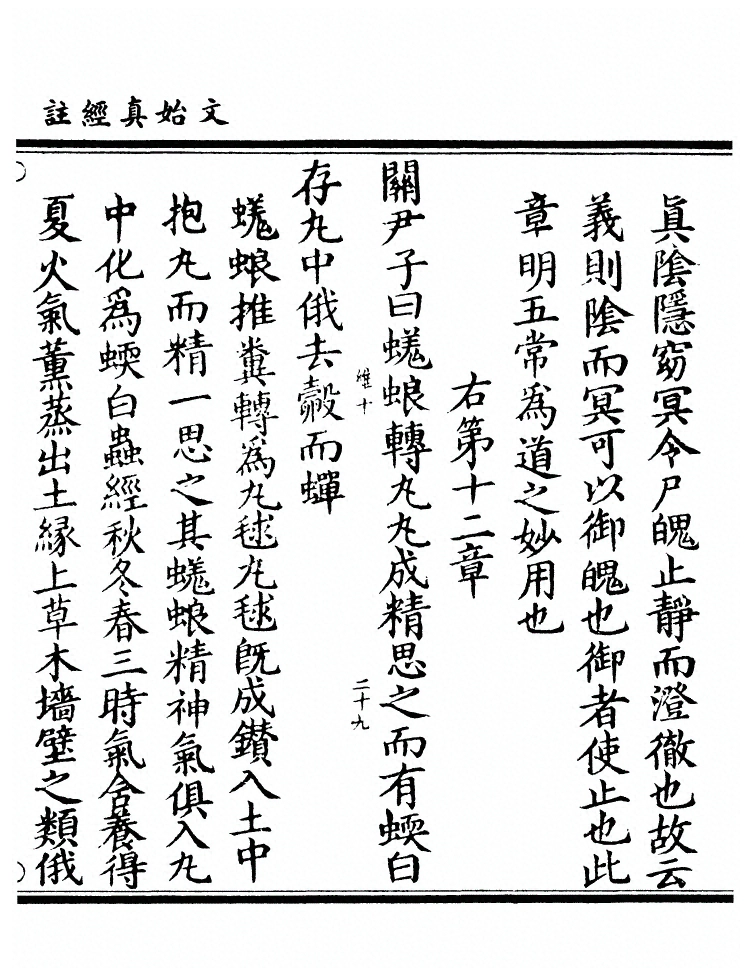 文始真經註
眞陰隱窈冥令尸魄止靜而澄徹也故云
義則陰而冥可以御魄也御者使止也此
章明五常爲道之妙用也
右第十二章
關尹子曰蜣蜋轉丸丸成精思之而有蝡白
維十
二十九
存丸中俄去㲉而蟬
蜣蜋推糞轉爲丸毬丸毬既成鑚入土中
抱丸而精一思之其蜣蜋精神氣俱入丸
中化爲蝡白蟲經秋冬春三時氣含養得
夏火氣薰蒸出土緣上草木墻壁之類俄